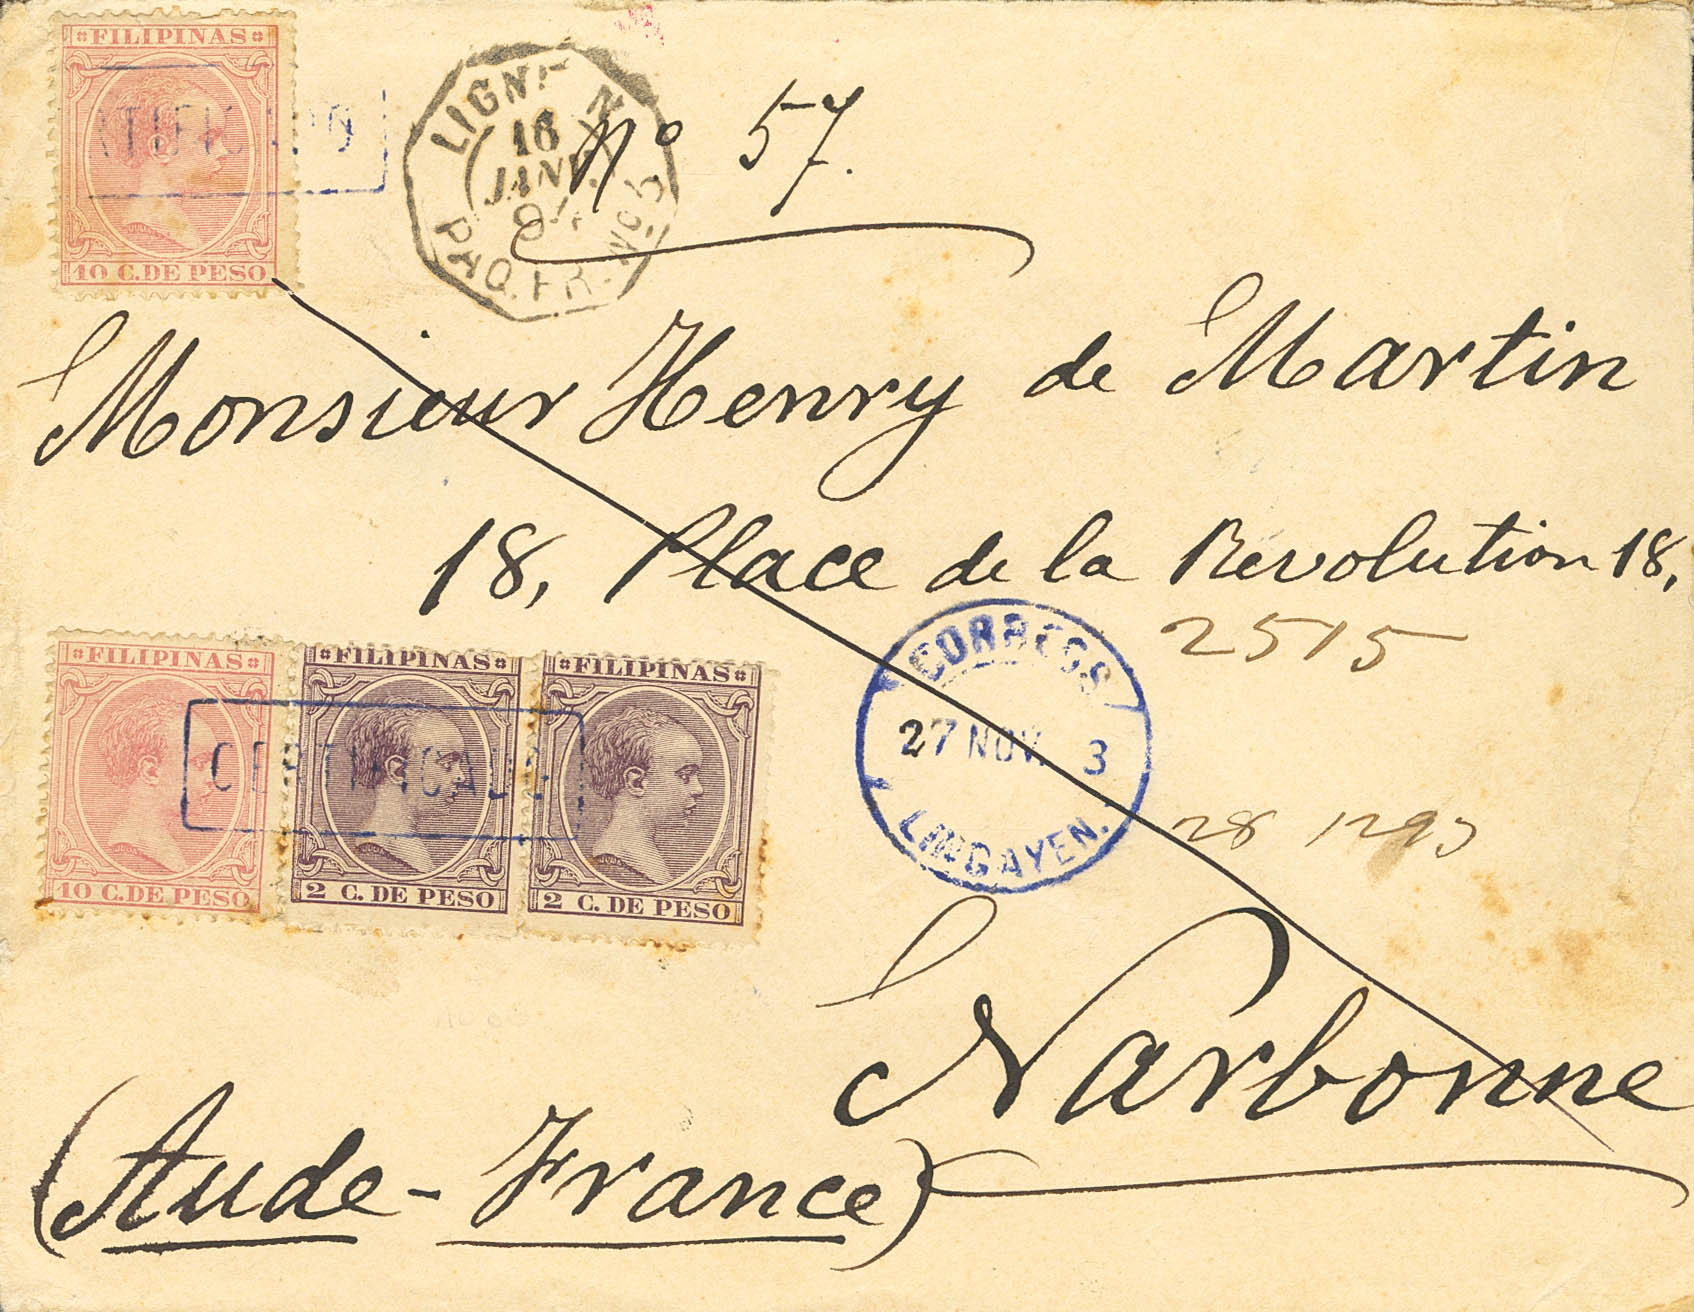 FILIPINAS
10 C. DE PESO
LIGNE N
16
JANV.
94
PAQ. FR. Nº 5
Nº 57.
Monsieur Henry de Martin
18, Place de la Revolution 18,
2515
FILIPINAS
10 C. DE PESO
FILIPINAS
2 C. DE PESO
FILIPINAS
2 C. DE PESO
CERTIFICADO
CORREOS
27 NOV. 3
LINGAYEN.
28
Narbonne
(Aude - France)